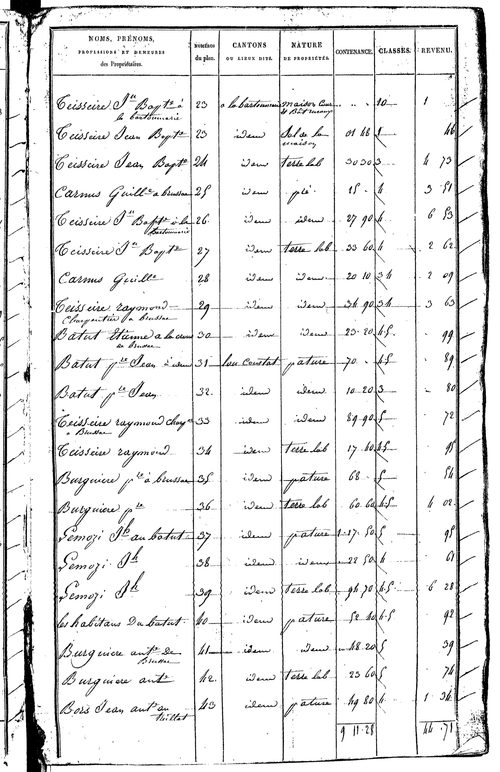 NOMS, PRÉNOMS, PROFESSIONS ET DEMEURES des Propriétaires. NUMÉROS du plan. CANTONS OU LIEUX DITS. NATURE DE PROPRIÉTÉS. CONTENANCE. CLASSES. REVENU.
Teisseire Jn Bapte à la bartounarié 23 a la bartounarie maison 10 1
Teisseire Jean Bapte 23 idem Sol de la maison 01 48 1 46
Teisseire Jean Bapte 24 idem terre lab 30 30 3 4 73
Carnus Guille a brusse 25 idem pré 15 4 3 51
Teisseire Jn Bapte à la Bartounarie 26 idem idem 27 90 4 6 53
Teisseire Jn Bapte 27 idem terre lab 33 60 4 2 62
Carnus Guille 28 idem idem 20 10 34 2 09
Teisseire raymond Charpentier a brusse 29 idem idem 34 90 34 3 63
Batut Etienne de Brusse 30 idem idem 23 20 45 99
Batut pre Jean à idem 31 lou Constat pature 70 45 89
Batut pre Jean 32 idem idem 10 20 3 80
Teisseire raymond a Brusse 33 idem idem 89 90 5 72
Teisseire raymond 34 idem terre lab 17 40 45 95
Burguiere pre à brusse 35 idem pature 68 5 54
Burguiere pre 36 idem terre lab 60 60 45 4 02
Gemozi Jh au batut 37 idem pature 1 17 50 5 95
Gemozi Jh 38 idem idem 22 50 4 61
Gemozi Jh 39 idem terre lab 94 70 45 6 28
les habitans du batut 40 idem pature 52 40 45 92
Burguiere ante de Brusse 41 idem idem 48 20 5 39
Burguiere ante 42 idem terre lab 23 60 5 74
Bors Jean ante au 43 idem pature 49 80 4 1 34
9 11 28 44 71